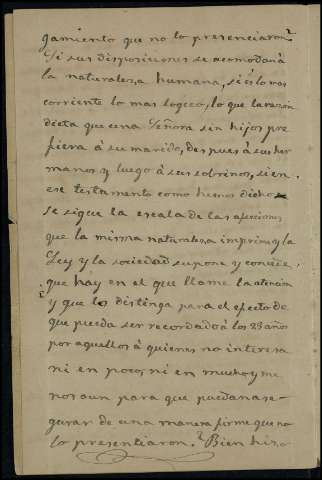 gamiento que no lo presenciaron?
Si sus disposiciones se acomodan á
la naturaleza humana, si és lo mas
corriente lo mas logico, lo que la razon
dicta que una Señora sin hijos pre
fiera á su marido, despues á sus her
manos y luego á sus sobrinos, si en
ese testamento como hemos dicho
se sigue la escala de las afecciones
que la misma naturaleza imprime y la
Ley y la sociedad supone y concede,
que háy en el que llame la atencion
y que lo distinga para el efecto de
que pueda ser recordado á los 23 años
por aquellos á quienes no interesa
ni en poco, ni en mucho y me
nos aun para que puedan ase-
gurar de una manera firme que no
lo presentiaron.? Bien hizo